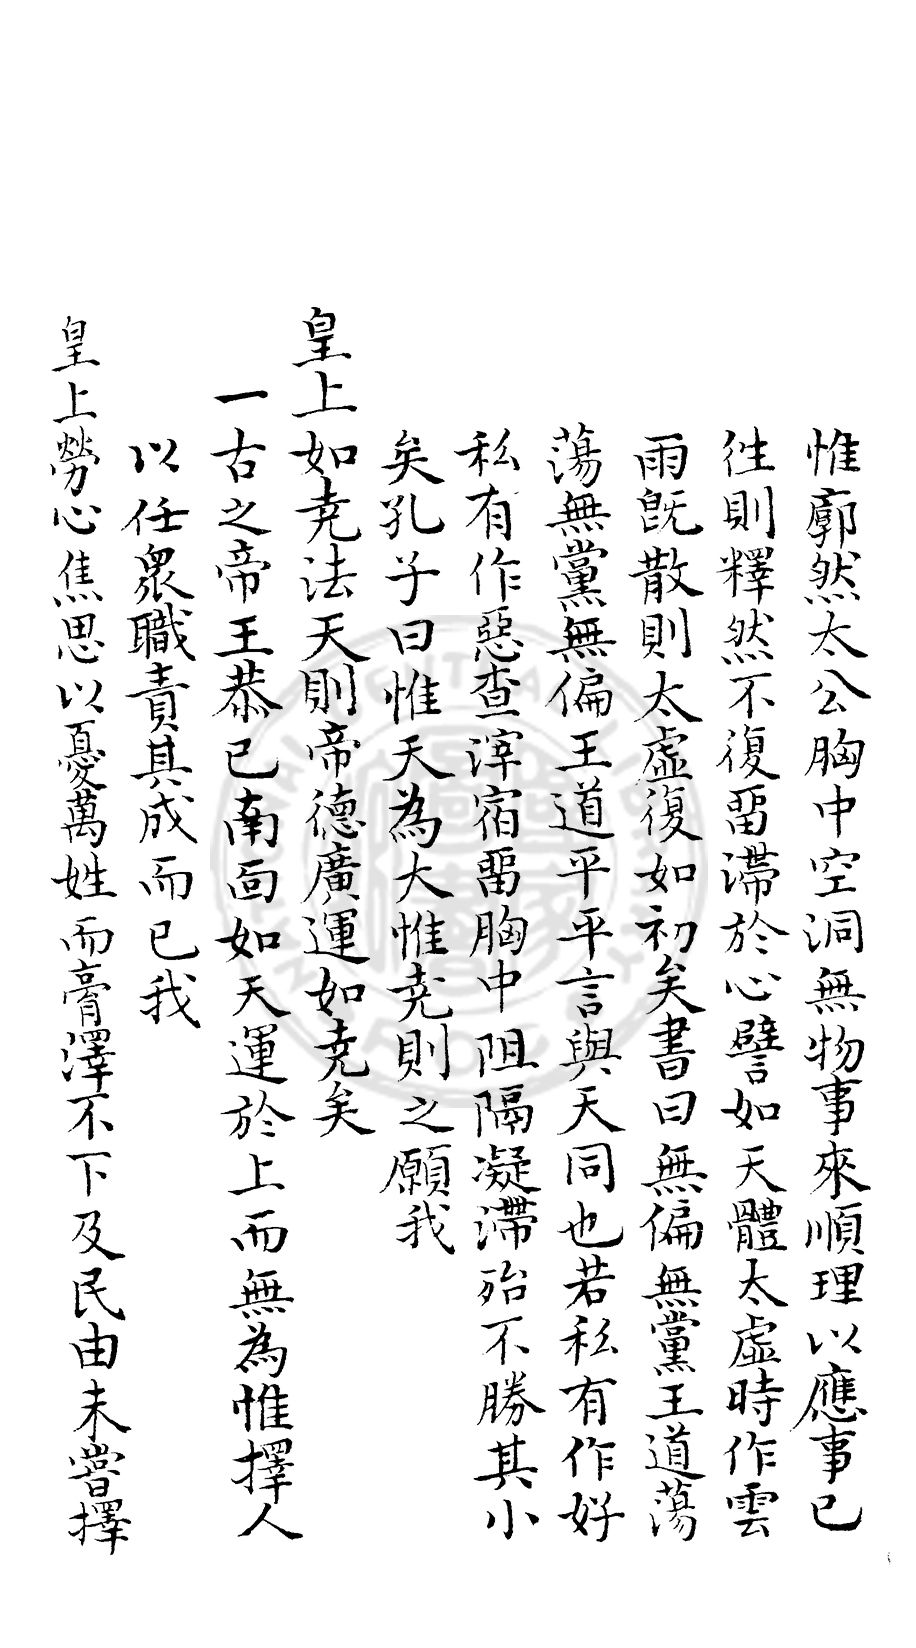 惟廓然太公胸中空洞無物事來順理以應事已
徃則釋然不復畱滯於心譬如天體太虛時作雲
雨旣散則太虛復如初矣書曰無偏無黨王道蕩
蕩無黨無偏王道平平言與天同也若私有作好
私有作惡查滓宿畱胸中阻隔凝滯殆不勝其小
矣孔子曰惟天為大惟堯則之願我
皇上如堯法天則帝德廣運如堯矣
一古之帝王恭已南面如天運於上而無為惟擇人
以任衆職責其成而已我
皇上勞心焦思以憂萬姓而膏澤不下及民由未嘗擇